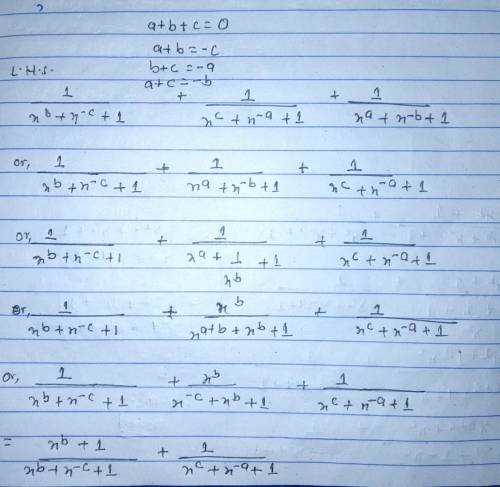 a+b+c=0
a+b=-c
b+c=-a
a+c=-b
L.H.S.
1/(x^b + x^-c + 1) + 1/(x^c + x^-a + 1) + 1/(x^a + x^-b + 1)
or, 1/(x^b + x^-c + 1) + 1/(x^a + x^-b + 1) + 1/(x^c + x^-a + 1)
or, 1/(x^b + x^-c + 1) + 1/(x^a + 1/x^b + 1) + 1/(x^c + x^-a + 1)
or, 1/(x^b + x^-c + 1) + x^b/(x^a+b + x^b + 1) + 1/(x^c + x^-a + 1)
or, 1/(x^b + x^-c + 1) + x^b/(x^-c + x^b + 1) + 1/(x^c + x^-a + 1)
= (x^b + 1)/(x^b + x^-c + 1) + 1/(x^c + x^-a + 1)